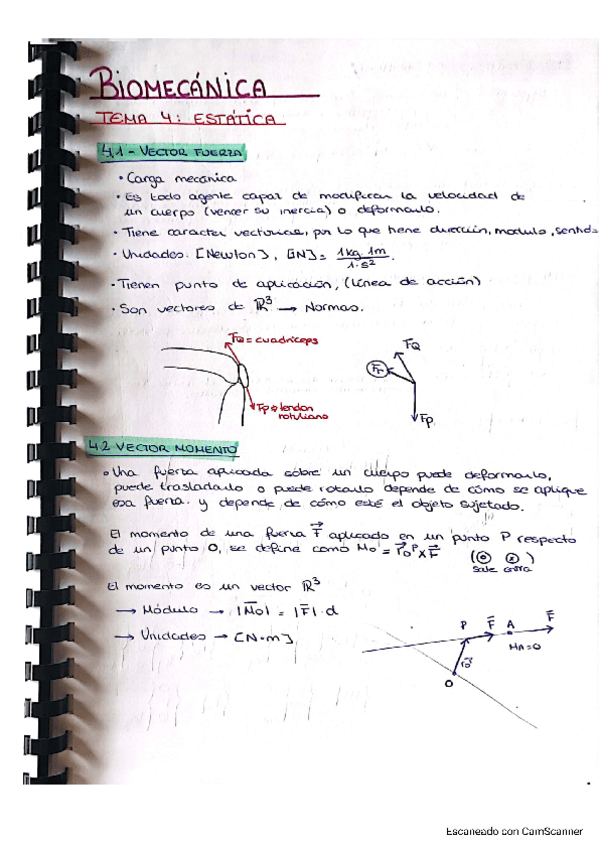 BIOMECÁNICA
TEMA 4: ESTÁTICA
4.1 - VECTOR FUERZA
• Carga mecánica
• Es todo agente capaz de modificar la velocidad de
un cuerpo (vencer su inercia) o deformarlo.
• Tiene caracter vectorial, por lo que tiene dirección, modulo, sentido
• Unidades: [Newton], [N] = 1kg 1m / 1·s²
• Tienen punto de aplicación, (línea de acción)
• Son vectores de ℝ³ → Normas.
FQ = cuadríceps
Fp = tendon
rotuliano
FQ
Fr
Fp
4.2 VECTOR MOMENTO
• Una fuerza aplicada sobre un cuerpo puede deformarlo,
puede trasladarlo o puede rotarlo depende de cómo se aplique
esa fuerza. y depende de cómo esté el objeto sujetado.
El momento de una fuerza F⃗ aplicado en un punto P respecto
de un punto O, se define como Mo = r⃗oᵖ x F⃗ (⊙ ⊗)
sale entra
El momento es un vector ℝ³
→ Módulo → |M⃗o| = |F⃗| · d
→ Unidades → [N·m]
P F⃗ A F⃗
MA=0
r⃗
O
Escaneado con CamScanner